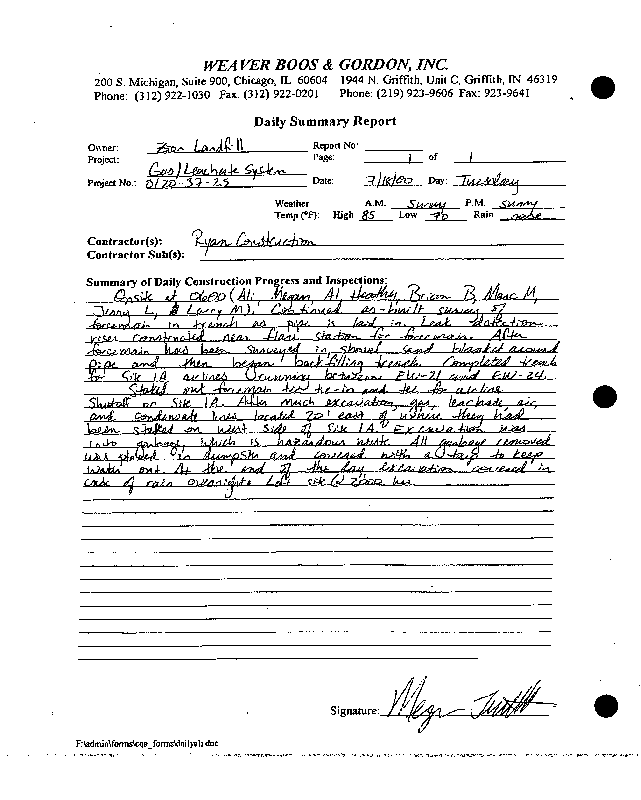 WEAVER BOOS & GORDON, INC.
200 S. Michigan, Suite 900, Chicago, IL 60604 1944 N. Griffith, Unit C, Griffith, IN 46319
Phone: (312) 922-1030 Fax: (312) 922-0201 Phone: (219) 923-9606 Fax: 923-9641
Daily Summary Report
Owner: Zion Landfill Report No:
Project: Gas/Leachate System Page: 1 of 1
Project No.: 0120-37-25 Date: 7/18/00 Day: Tuesday
Weather A.M. Sunny P.M. sunny
Temp (°F): High 85 Low 70 Rain none
Contractor(s): Ryan Construction
Contractor Sub(s):
Summary of Daily Construction Progress and Inspections:
Onsite at 0600 (Ali, Megan, Al, Heather, Brian B, Marc M,
Jerry L, & Larry M). Continued as-built survey of
forcemain in trench as pipe is laid in. Leak detection
riser constructed near flare station for forcemain. After
forcemain had been surveyed in, shovel sand blanket around
pipe and then began backfilling trench. Completed trench
for Site 1A airlines running between EW-21 and EW-24.
Staked out forcemain tie-in and tee for airline
Shutoff on Site 1A. After much excavation, gas, leachate, air,
and condensate lines located 20' east of where they had
been staked on west side of Site 1A. Excavation was
into garbage, which is hazardous waste. All garbage removed
was placed in dumpster and covered with a tarp to keep
water out. At the end of the day excavation covered in
case of rain overnight. Left site @ 2000 hrs.
Signature: Megan
F:\admin\forms\cqa_forms\dailysh.doc